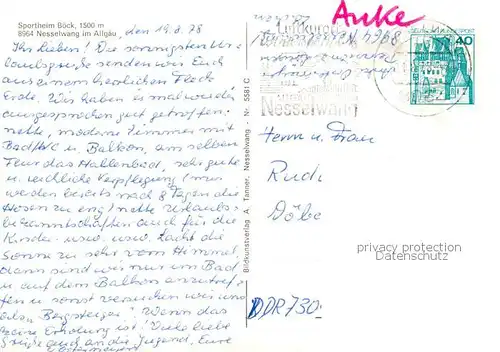 Sportheim Böck, 1500 m
8964 Nesselwang im Allgäu, den 19.8.78
Ihr Lieben! Die sonnigsten Ur-
laubsgrüße senden wir Euch
aus einem herrlichen Fleck
Erde. Wir haben es mal wieder
ausgesprochen gut getroffen:
nette, moderne Zimmer mit
Bad/WC u. Balkon, am selben
Flur das Hallenbad, sehr gute
u. reichliche Verpflegung (mir
werden bereits nach 8 Tagen die
Hosen zu eng) nette Urlaubs-
bekanntschaften auch für die
Kinder usw. usw. Lacht die
Sonne zu sehr vom Himmel,
dann sind wir nur im Bad
u. auf dem Balkon anzutref-
fen u. sonst versuchen wir uns
als "Bergsteiger". Wenn das
keine Erholung ist! Viele liebe
Grüße auch an die Jugend, Eure
Bildkunstverlag A. Tanner, Nesselwang - Nr. 5581 C
Anke
Luftkurort
8964
Nesselwang
DEUTSCHE BUNDESPOST
40
Herrn u. Frau
Rudi
Döbe
DDR 730
privacy protection
Datenschutz